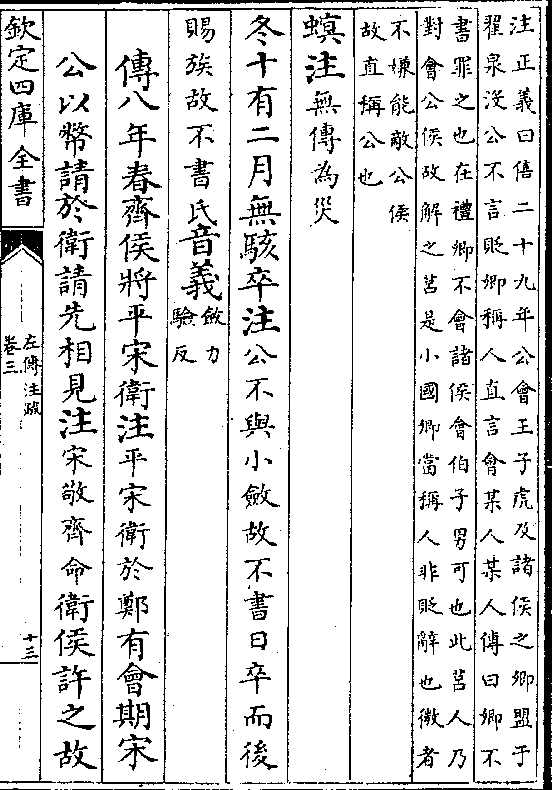 注正義曰僖二十九年公會王子虎及諸侯之卿盟于
翟泉沒公不言貶卿稱人直言會某人某人傳曰卿不
書罪之也在禮卿不會諸侯會伯子男可也此莒人乃
對會公侯故解之莒是小國卿當稱人非貶辭也微者
不嫌能敵公侯
故直稱公也
螟注無傳為災
冬十有二月無駭卒注公不與小斂故不書日卒而後
賜族故不書氏音義斂力
驗反
傳八年春齊侯將平宋衛注平宋衛於鄭有會期宋
公以幣請於衛請先相見注宋敬齊命衛侯許之故
欽定四庫全書
左傳注疏
卷三
十三